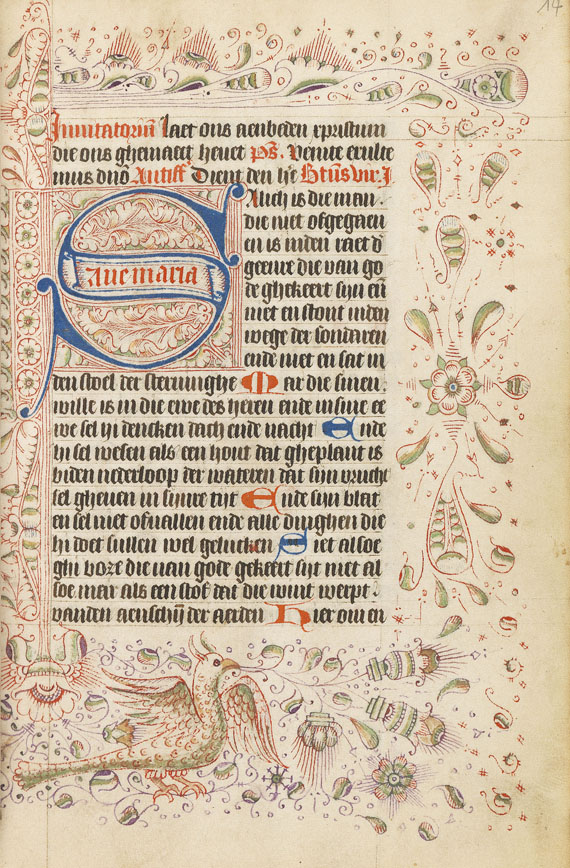 14
Inuitatoriū Laet ons aenbeden xpristum
die ons ghemaect heuet Ps. Venite exulte
mus dn̄o Antiff Dient den h'e
Alich is die man.
die niet ofgegaen
en is inden raet d'
geenre die van go
de ghekeert sijn en̄
niet en stont inden
wege der sondaren
ende niet en sat in
aue maria
den stoel der steruinghe Mar die sinen
wille is in die ewe des heren ende in sijnre ee
we sel hi dencken dach ende nacht Ende
hi sel wesen als een hout dat gheplant is
biden nederloop der wateren dat sijn vrucht
sel gheuen in sijnre tijt Ende sijn blat
en sel niet ofuallen ende alle dinghen die
hi doet sullen wel gelucken Niet alsoe
ghi boze die van gode gekeert sijt niet al
soe mar als een stof dat die wint werpt.
vanden aenschijn der aerden Hier om en